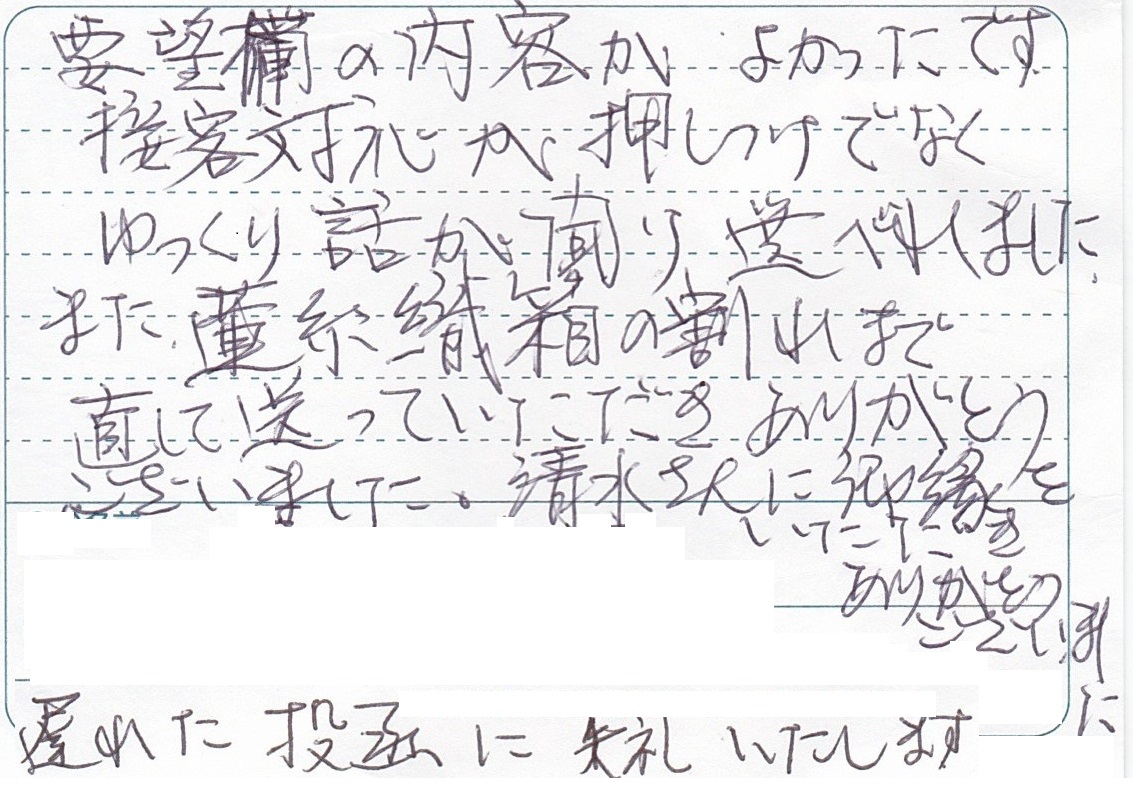 要望欄の内容が よかったです
接客対応が 押しつけでなく
ゆっくり 話が 聞り 選べれました
また、董糸織箱の割れまで
直して送っていただき ありがとう
ございました。清水さんに御縁を
いただき
ありがとう
ございまし
た
遅れた 投函に 失礼いたします